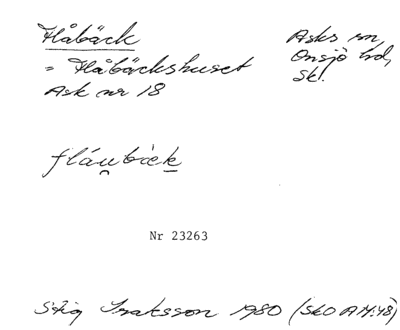 Flåbäck
= Flåbäckshuset
Ask nr 18
Asks sn
Onsjö hd,
Sk.
fláubìek
Nr 23263
Stig Isaksson 1980 (SkO AM:48)